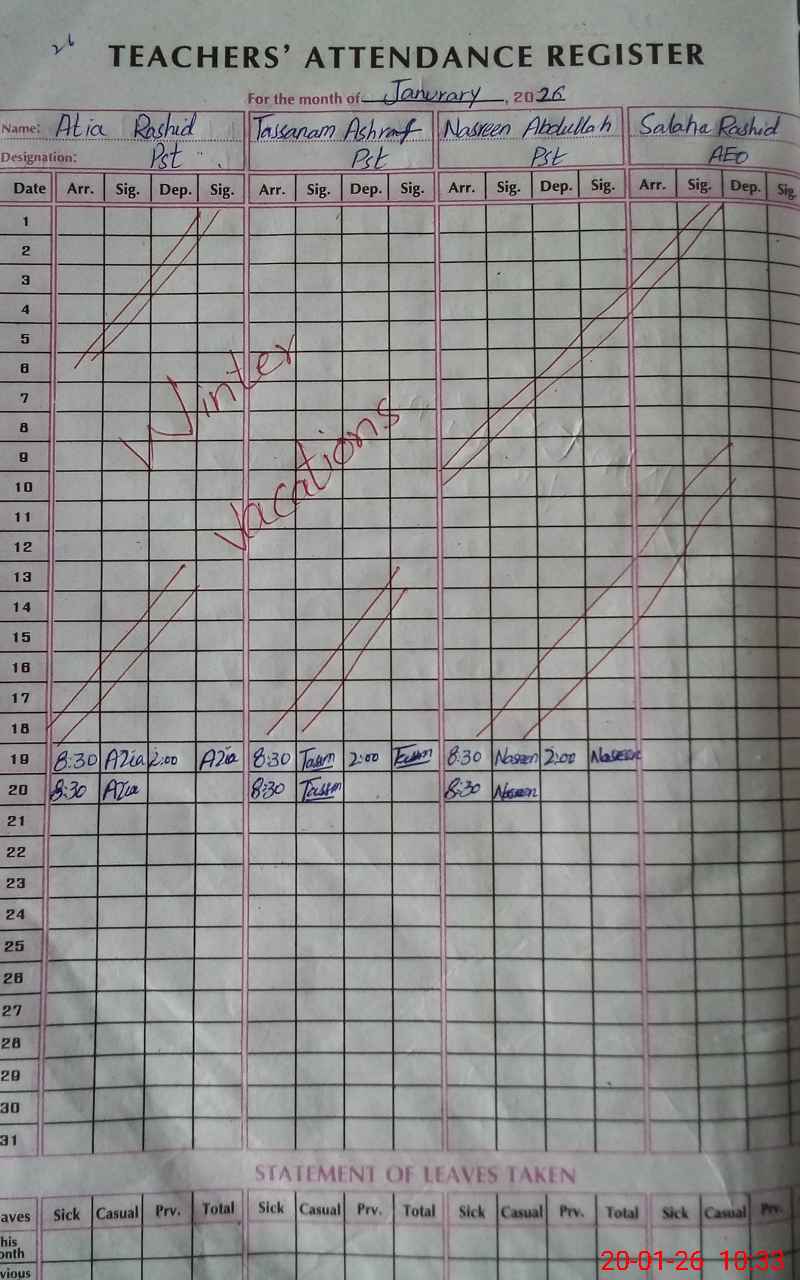 26
TEACHERS' ATTENDANCE REGISTER
For the month of Janurary, 2026
Name: Atia Rashid Tassanam Ashraf Nasreen Abdullah Salaha Rashid
Designation: Pst Pst Pst AEO
Date Arr. Sig. Dep. Sig. Arr. Sig. Dep. Sig. Arr. Sig. Dep. Sig. Arr. Sig. Dep. Sig.
1
2
3
4
5
6
7
8
9
10
11
12
13
14
15
16
17
18
Winter
Vacations
19 8:30 Atia 2:00 Atia 8:30 Tasm 2:00 Tasm 8:30 Nasreen 2:00 Nasreen
20 8:30 Atia 8:30 Tasm 8:30 Nasreen
21
22
23
24
25
26
27
28
29
30
31
STATEMENT OF LEAVES TAKEN
aves Sick Casual Prv. Total Sick Casual Prv. Total Sick Casual Prv. Total Sick Casual Prv.
his
onth
vious
20-01-26 10:33